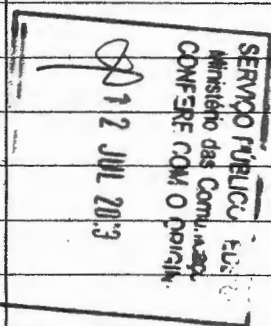 SERVIÇO PÚBLICO
Ministério das
CONFERE COM O ORIGIN
12 JUL 2013